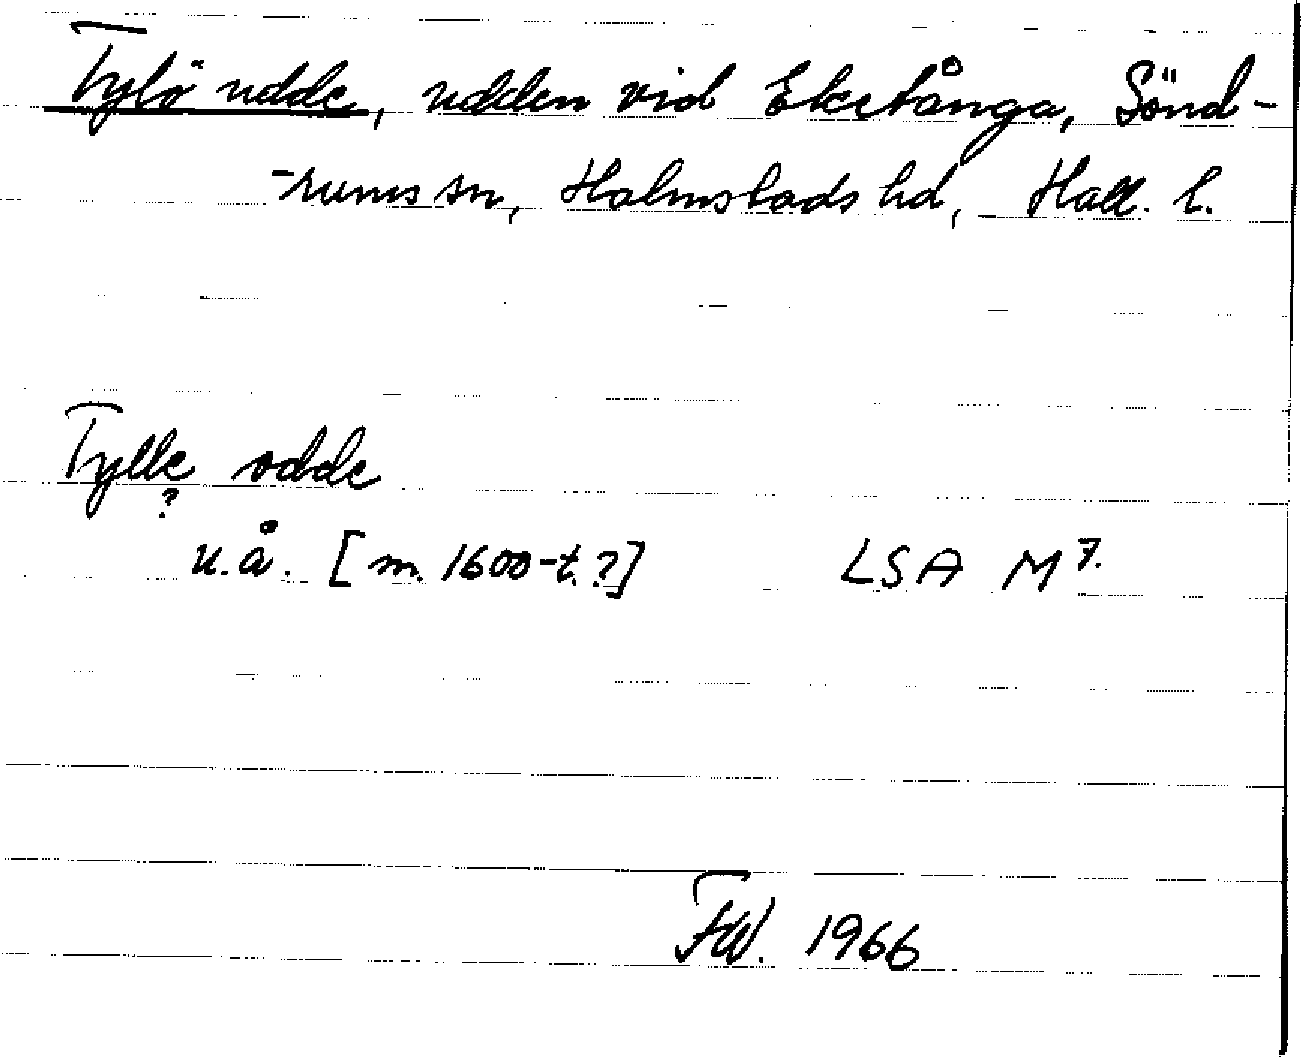 Tylö udde, udden vid Eketånga, Sönd-
-rums sn, Halmstads hd, Hall. l.
Tylle odde
?
u.å. [m. 1600-t.?] LSA M 7.
FW. 1966